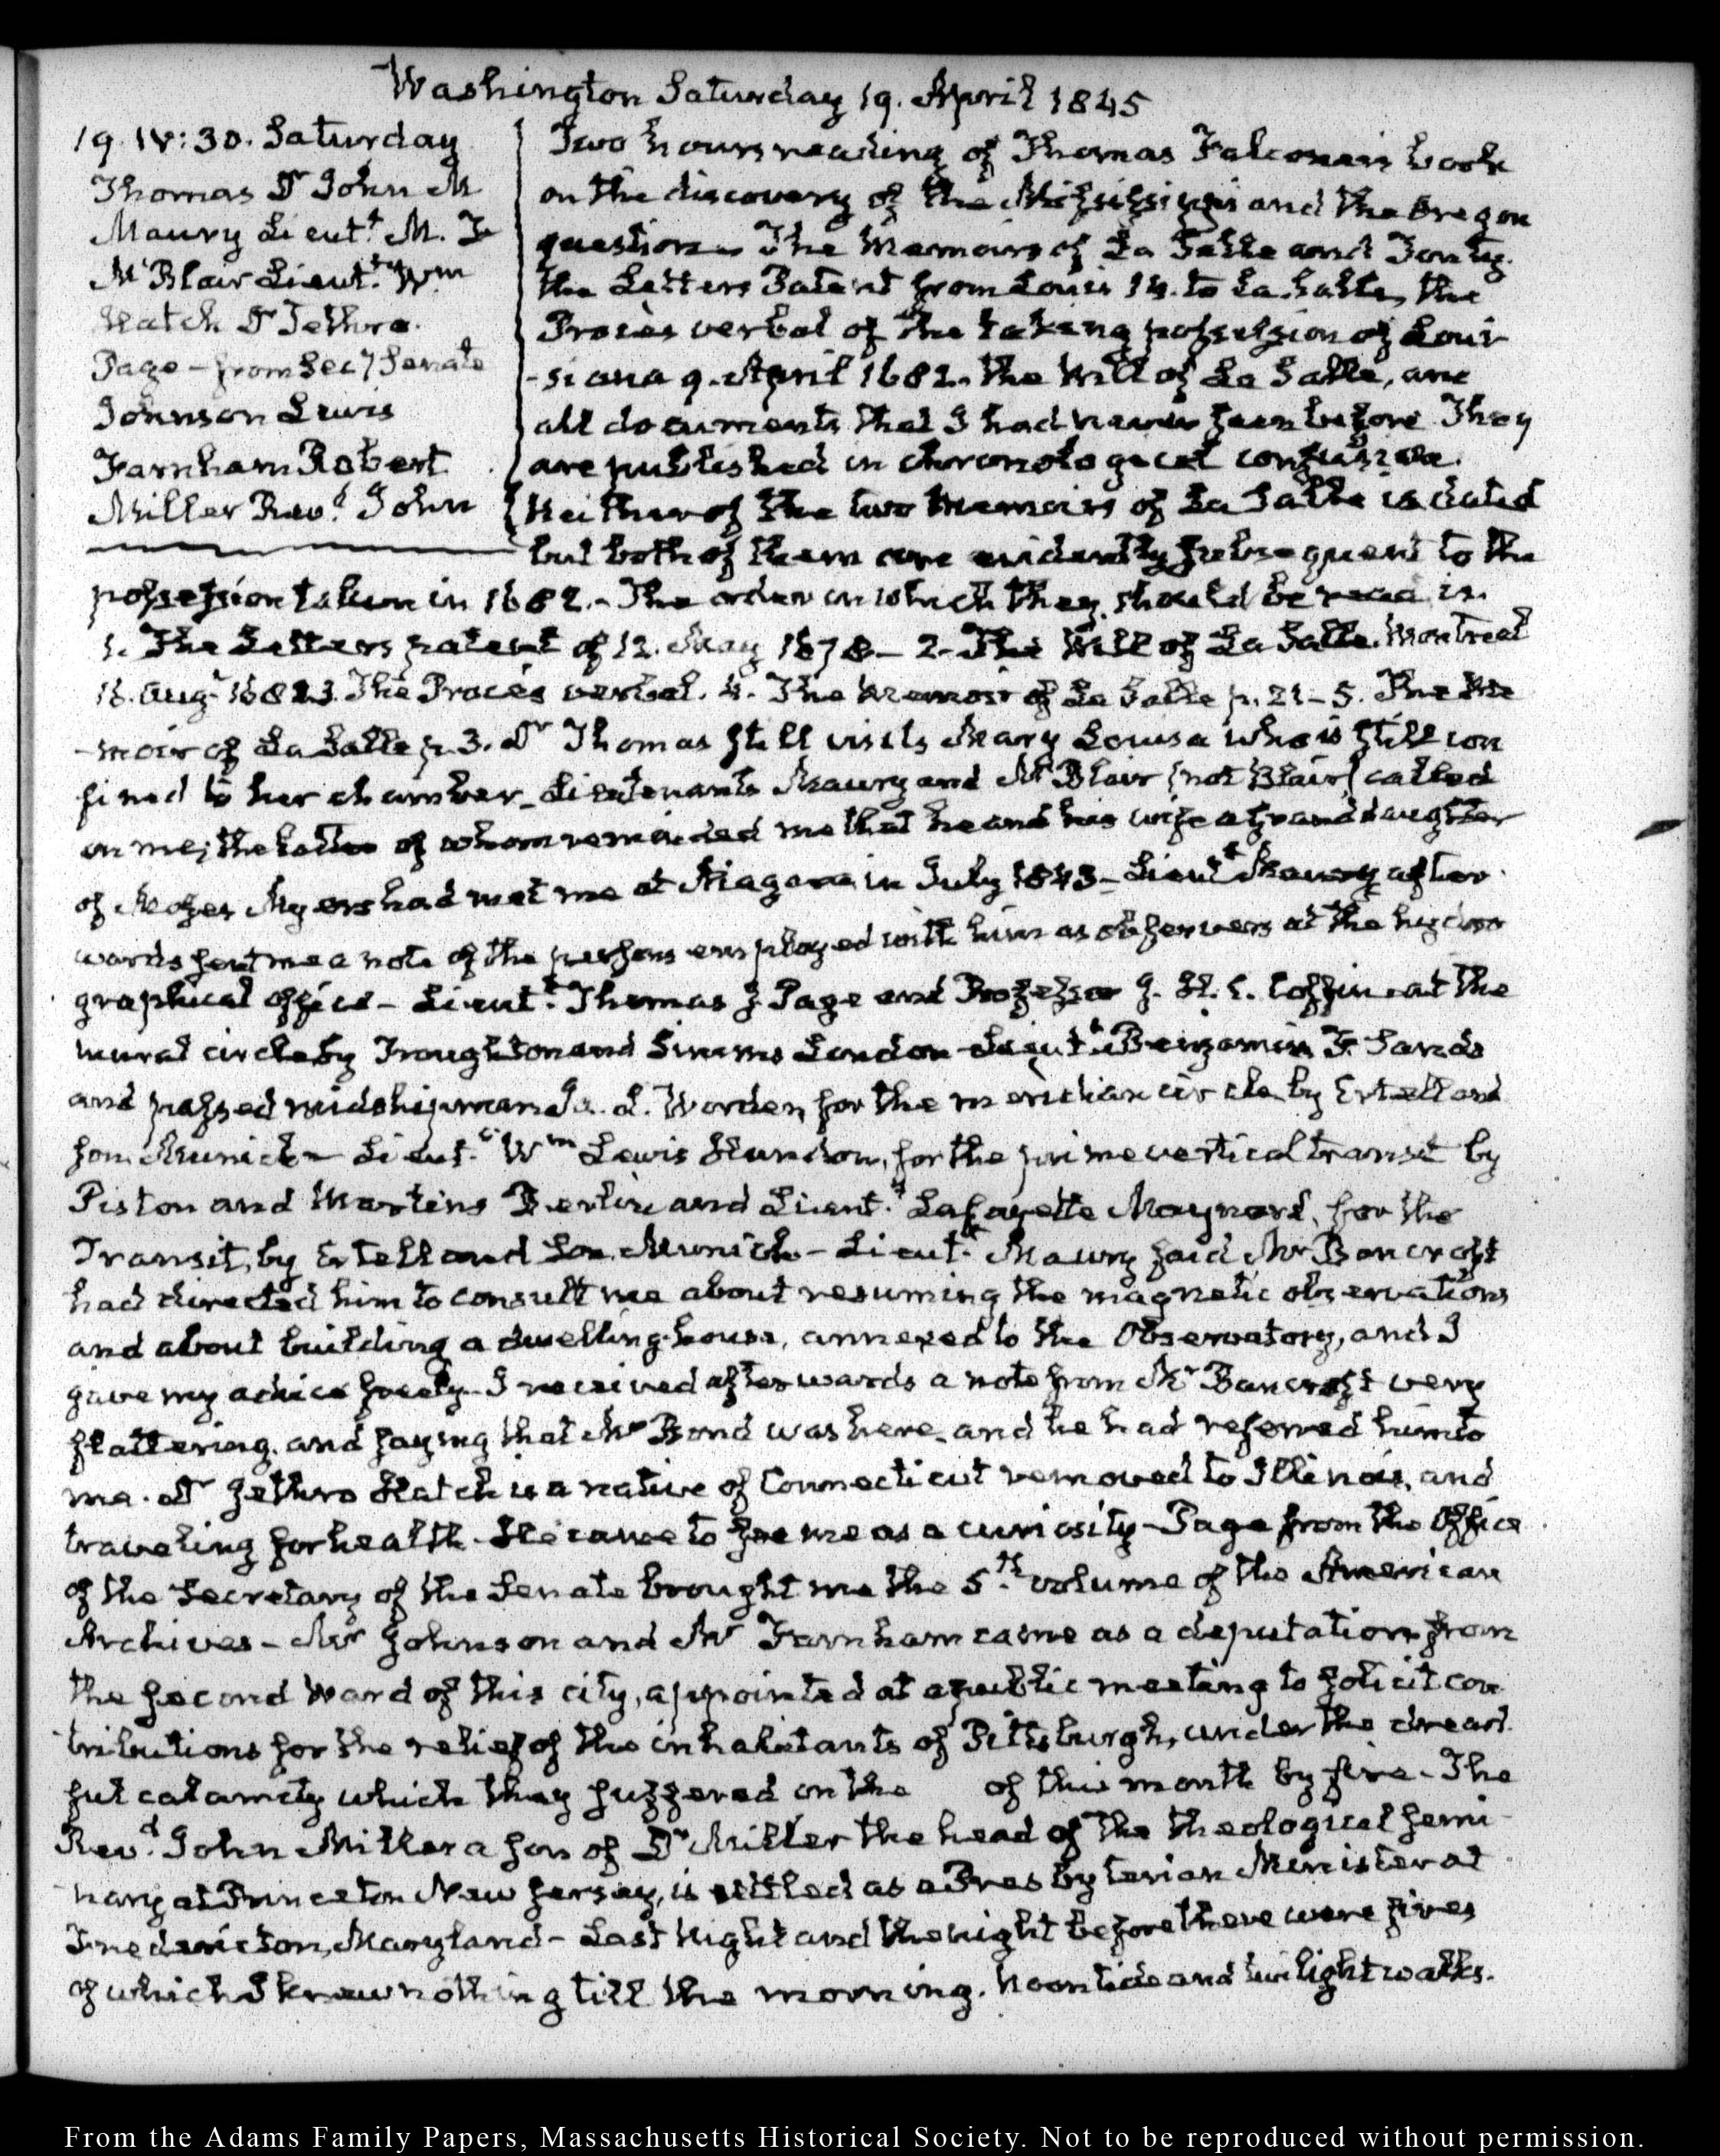 Washington Saturday 19. April 1845
19. IV:30. Saturday
Thomas Dr John M
Maury Lieutt. M. F
McBlair Lieutt. Wm
Hatch Dr Jethro.
Page – from Secy Senate
Johnson Lewis
Farnham Robert
Miller Revd. John
Two hours reading of Thomas Falconer's book
on the discovery of the Mississippi and the Oregon
question. The Memoirs of La Salle and Tonty.
the Letters Patent from Louis 14. to La Salle, the
Procès verbal of the taking possession of Loui-
-siana 9. April 1682. the Will of La Salle, are
all documents that I had never seen before. They
are published in chronological confusion.
Neither of the two Memoirs of La Salle is dated
but both of them are evidently subsequent to the
possession taken in 1682.– The order in which they should be read is.
1. The Letters patent of 12. May 1678– 2– The Will of La Salle. Montreal
16. Augt 1681 3. The Procès verbal. 4. The Memoir of La Salle p. 21– 5. The Me
-moir of La Salle p. 3. Dr Thomas still visits Mary Louisa who is still con
fined to her chamber– Lieutenants Maury and McBlair (not Blair) called
on me; the latter of whom reminded me that he and his wife a granddaughter
of Moses Myers had met me at Niagara in July 1843– Lieutt Maury after-
wards sent me a note of the persons employed with him as observers at the hydro
graphical office– Lieutt. Thomas J Page and Professor J. H. C. Coffin at the
mural circle by Troughton and Simms London Lieutt. Benjamin F. Sands
and passed midshipman J. L. Worden, for the meridian circle by Ertell and
son Munich– Lieutt. Wm Lewis Herndon, for the prime vertical transit by
Pistor and Martins Berlin and Lieutt. Lafayette Maynard, for the
Transit, by Ertell and Son Munich– Lieutt Maury said Mr Bancroft
had directed him to consult me about resuming the magnetic observations
and about building a dwelling-house, annexed to the Observatory, and I
gave my advice freely– I received afterwards a note from Mr Bancroft very
flattering, and saying that Mr Bond was here, and he had referred him to
me. Dr Jethro Hatch is a native of Connecticut removed to Illinois, and
traveling for health– He came to see me as a curiosity– Page from the Office
of the Secretary of the Senate brought me the 5th. volume of the American
Archives– Mr Johnson and Mr Farnham came as a deputation from
the second Ward of this city, appointed at a public meeting to solicit con
tributions for the relief of the inhabitants of Pittsburgh, under the dread-
ful calamity which they suffered on the of this month by fire– The
Revd. John Miller a son of Dr Miller the head of the theological semi-
nary at Princeton New Jersey, is settled as a Presbyterian Minister at
Fredericton, Maryland– Last Night and the night before there were fires
of which I knew nothing till the morning. Noontide and twilight walks.
From the Adams Family Papers, Massachusetts Historical Society. Not to be reproduced without permission.